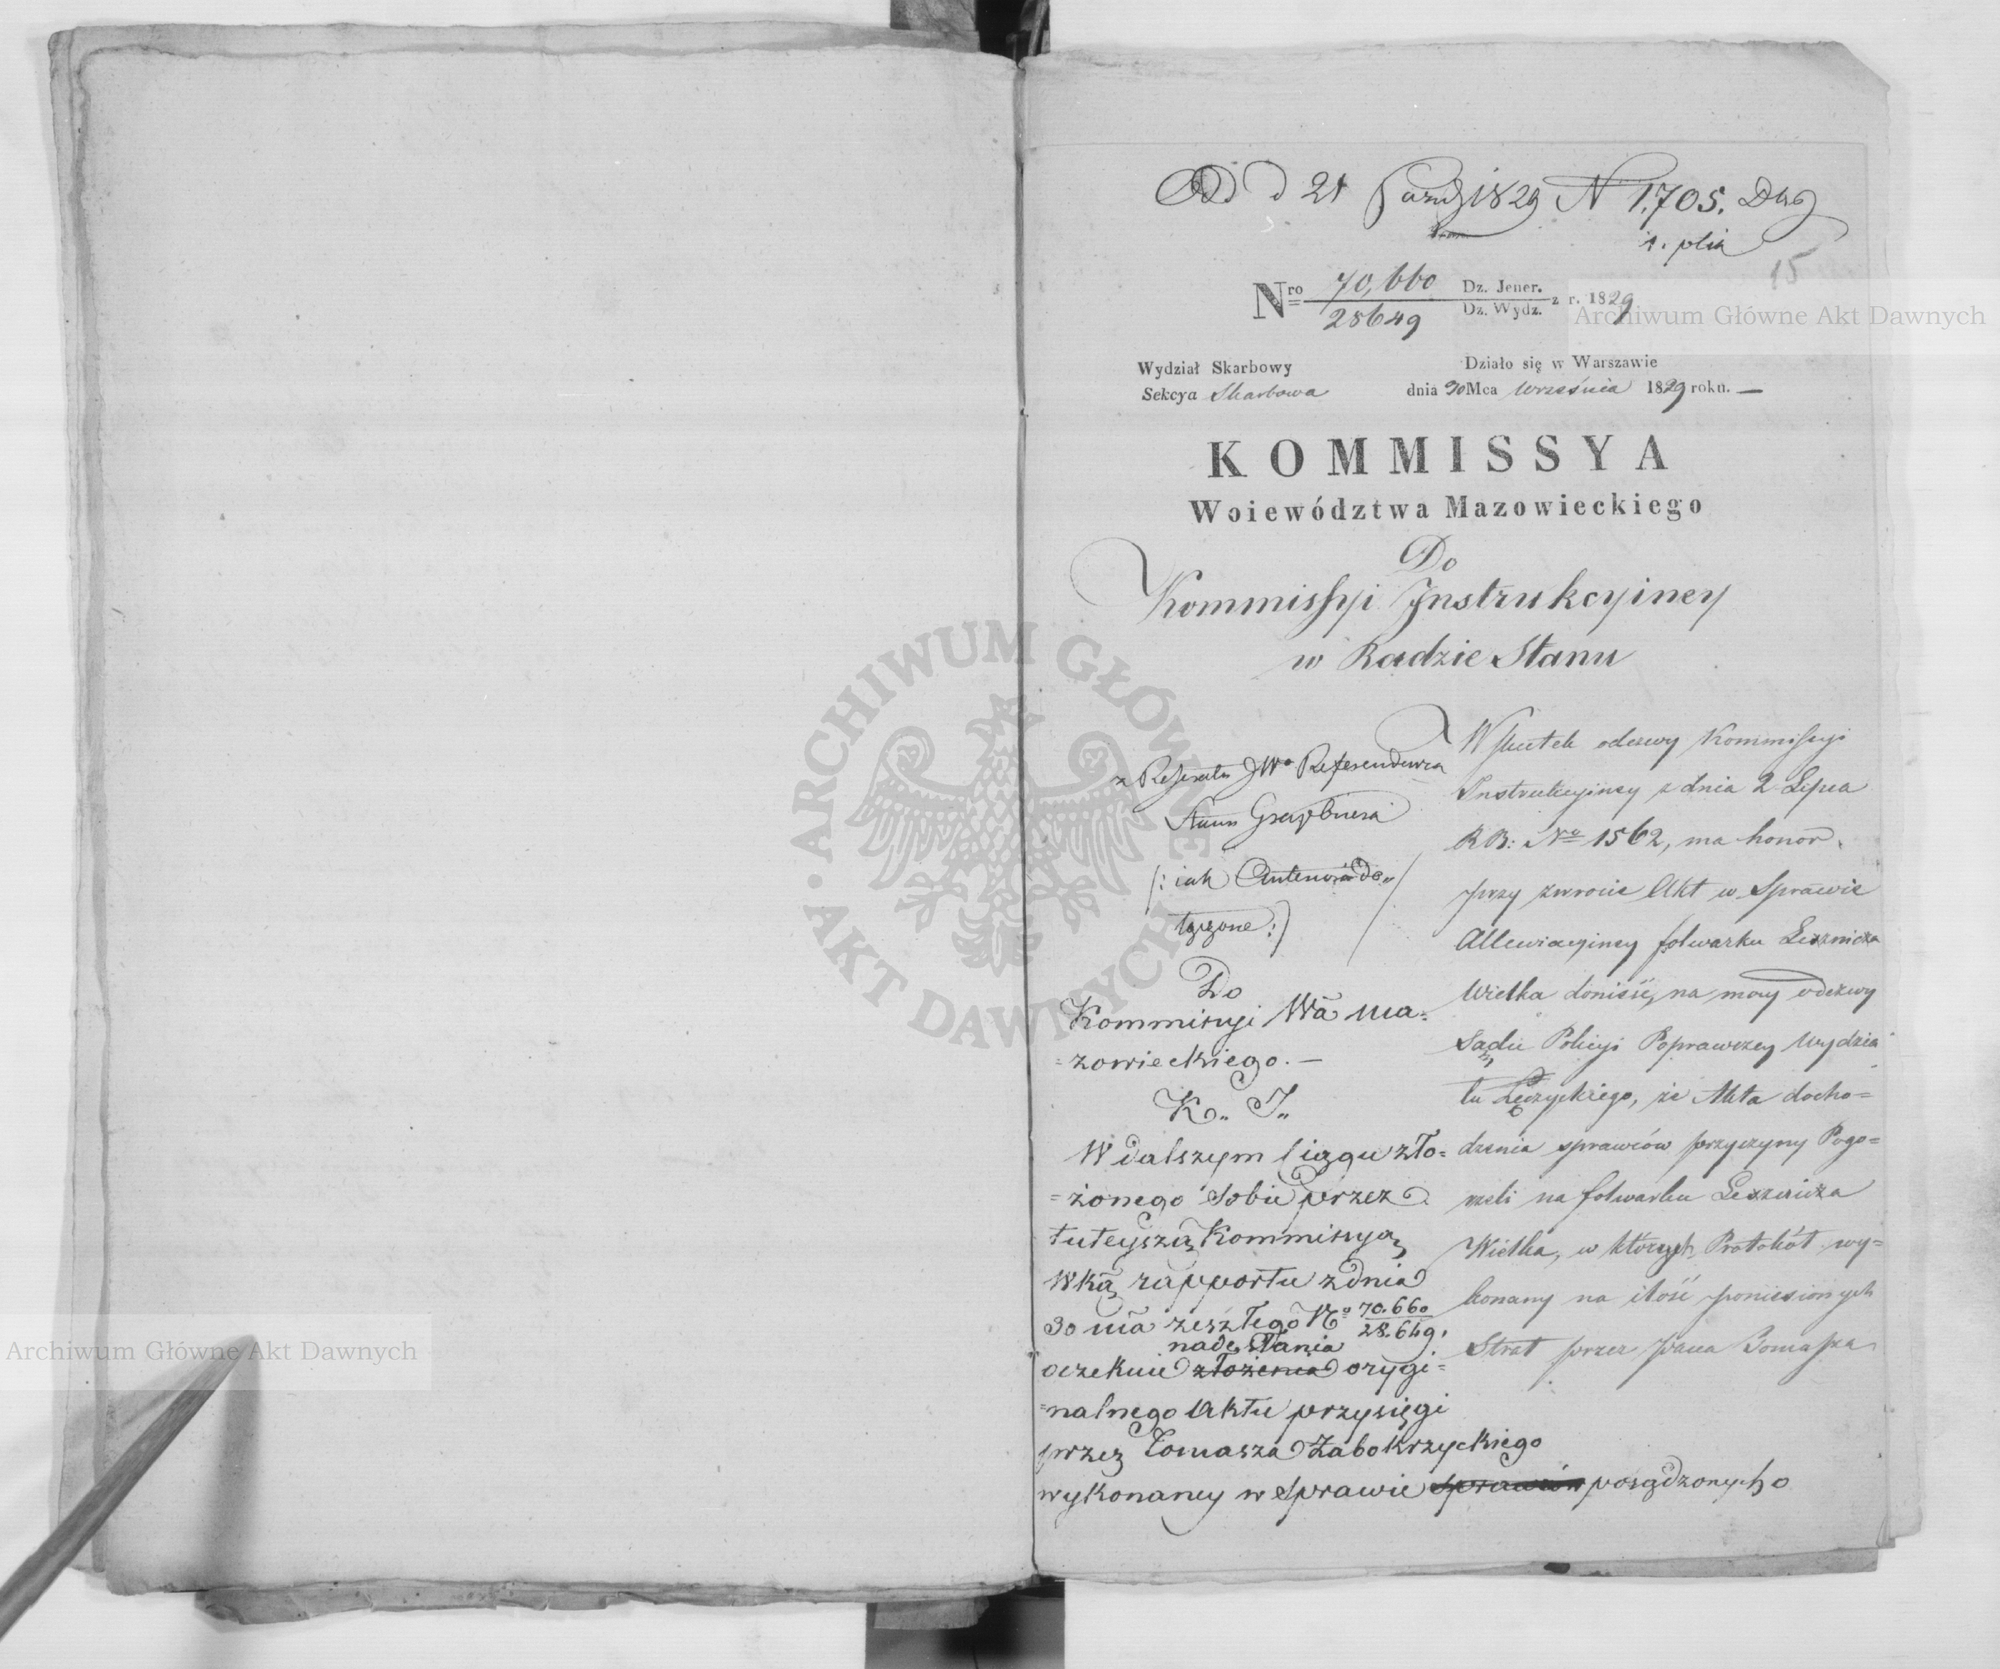 d 21 Paźdz 1829 N 1,705.
1. plik
15
Nro 70,660 Dz. Jener. z r. 1829
28649 Dz. Wydz.
Wydział Skarbowy
Sekcya Skarbowa
Działo się w Warszawie
dnia 30 Mca Września 1829 roku. —
KOMMISSYA
Woiewództwa Mazowieckiego
Do
Kommissyi Instrukcyiney
w Radzie Stanu
W skutek odezwy Kommissyi
Instrukcyiney z dnia 2 Lipca
R B: No 1562, ma honor,
przy zwrocie Akt w Sprawie
Allewiacyiney folwarku Lesznicza
Wielka donieść, na mocy odezwy
Sądu Policyi Poprawczey Wydzia
łu Łęczyckiego, że Akta docho=
dzenia sprawców przyczyny Pogo=
rzeli na folwarku Lesznicza
Wielka, w których Protokół wy=
konany na ilość poniesionych
Strat przez Pana Tomasza
z Referatu JWo Referendarza
Stanu Grajbnera
/: iak dołączone :/
Do
Kommissyi Wa Ma=
=zowieckiego. —
K.. I..
W dalszym Ciągu zło=
=żonego sobie przez
tuteyszą Kommissyą
Wką rapportu z dnia
30 ma zeszłego No 70.660
28.649.
nadesłania
oczekuie złożenia orygi=
=nalnego Aktu przysięgi
przez Tomasza Zabokrzyckiego
wykonaney w sprawie sprawców posądzonych o
Archiwum Główne Akt Dawnych
Archiwum Główne Akt Dawnych
ARCHIWUM GŁÓWNE AKT DAWNYCH